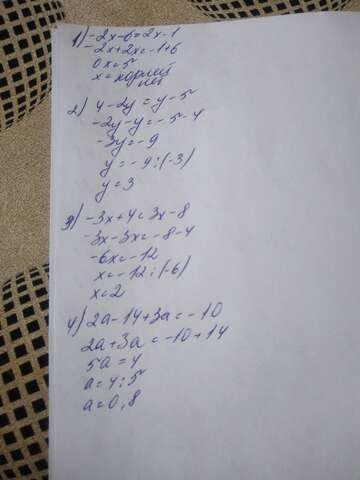 1) -2x-6=2x-1
-2x+2x=-1+6
0x=5
x=корней
нет
2) 4-2y=y-5
-2y-y=-5-4
-3y=-9
y=-9:(-3)
y=3
3) -3x+4=3x-8
-3x-3x=-8-4
-6x=-12
x=-12:(-6)
x=2
4) 2a-14+3a=-10
2a+3a=-10+14
5a=4
a=4:5
a=0,8